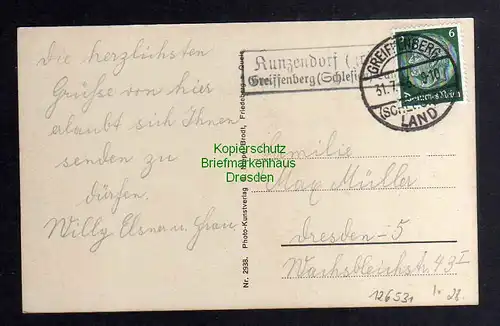 die herzlichsten
Grüsse von hier
erlaubt sich Ihnen
senden zu
dürfen.
Willy Elsner u. Frau
Nr. 2938. Photo-Kunstverlag Brodt, Friedeberg a. Queis
Kunzendorf
Greiffenberg (Schles
GREIFFENBERG
31.7.
9-10
(SCHLES)
LAND
6
Deutsches Reich
Kopierschutz
Briefmarkenhaus
Dresden
Familie
Max Müller
Dresden-5
Wachsbleichstr. 49 I
126531